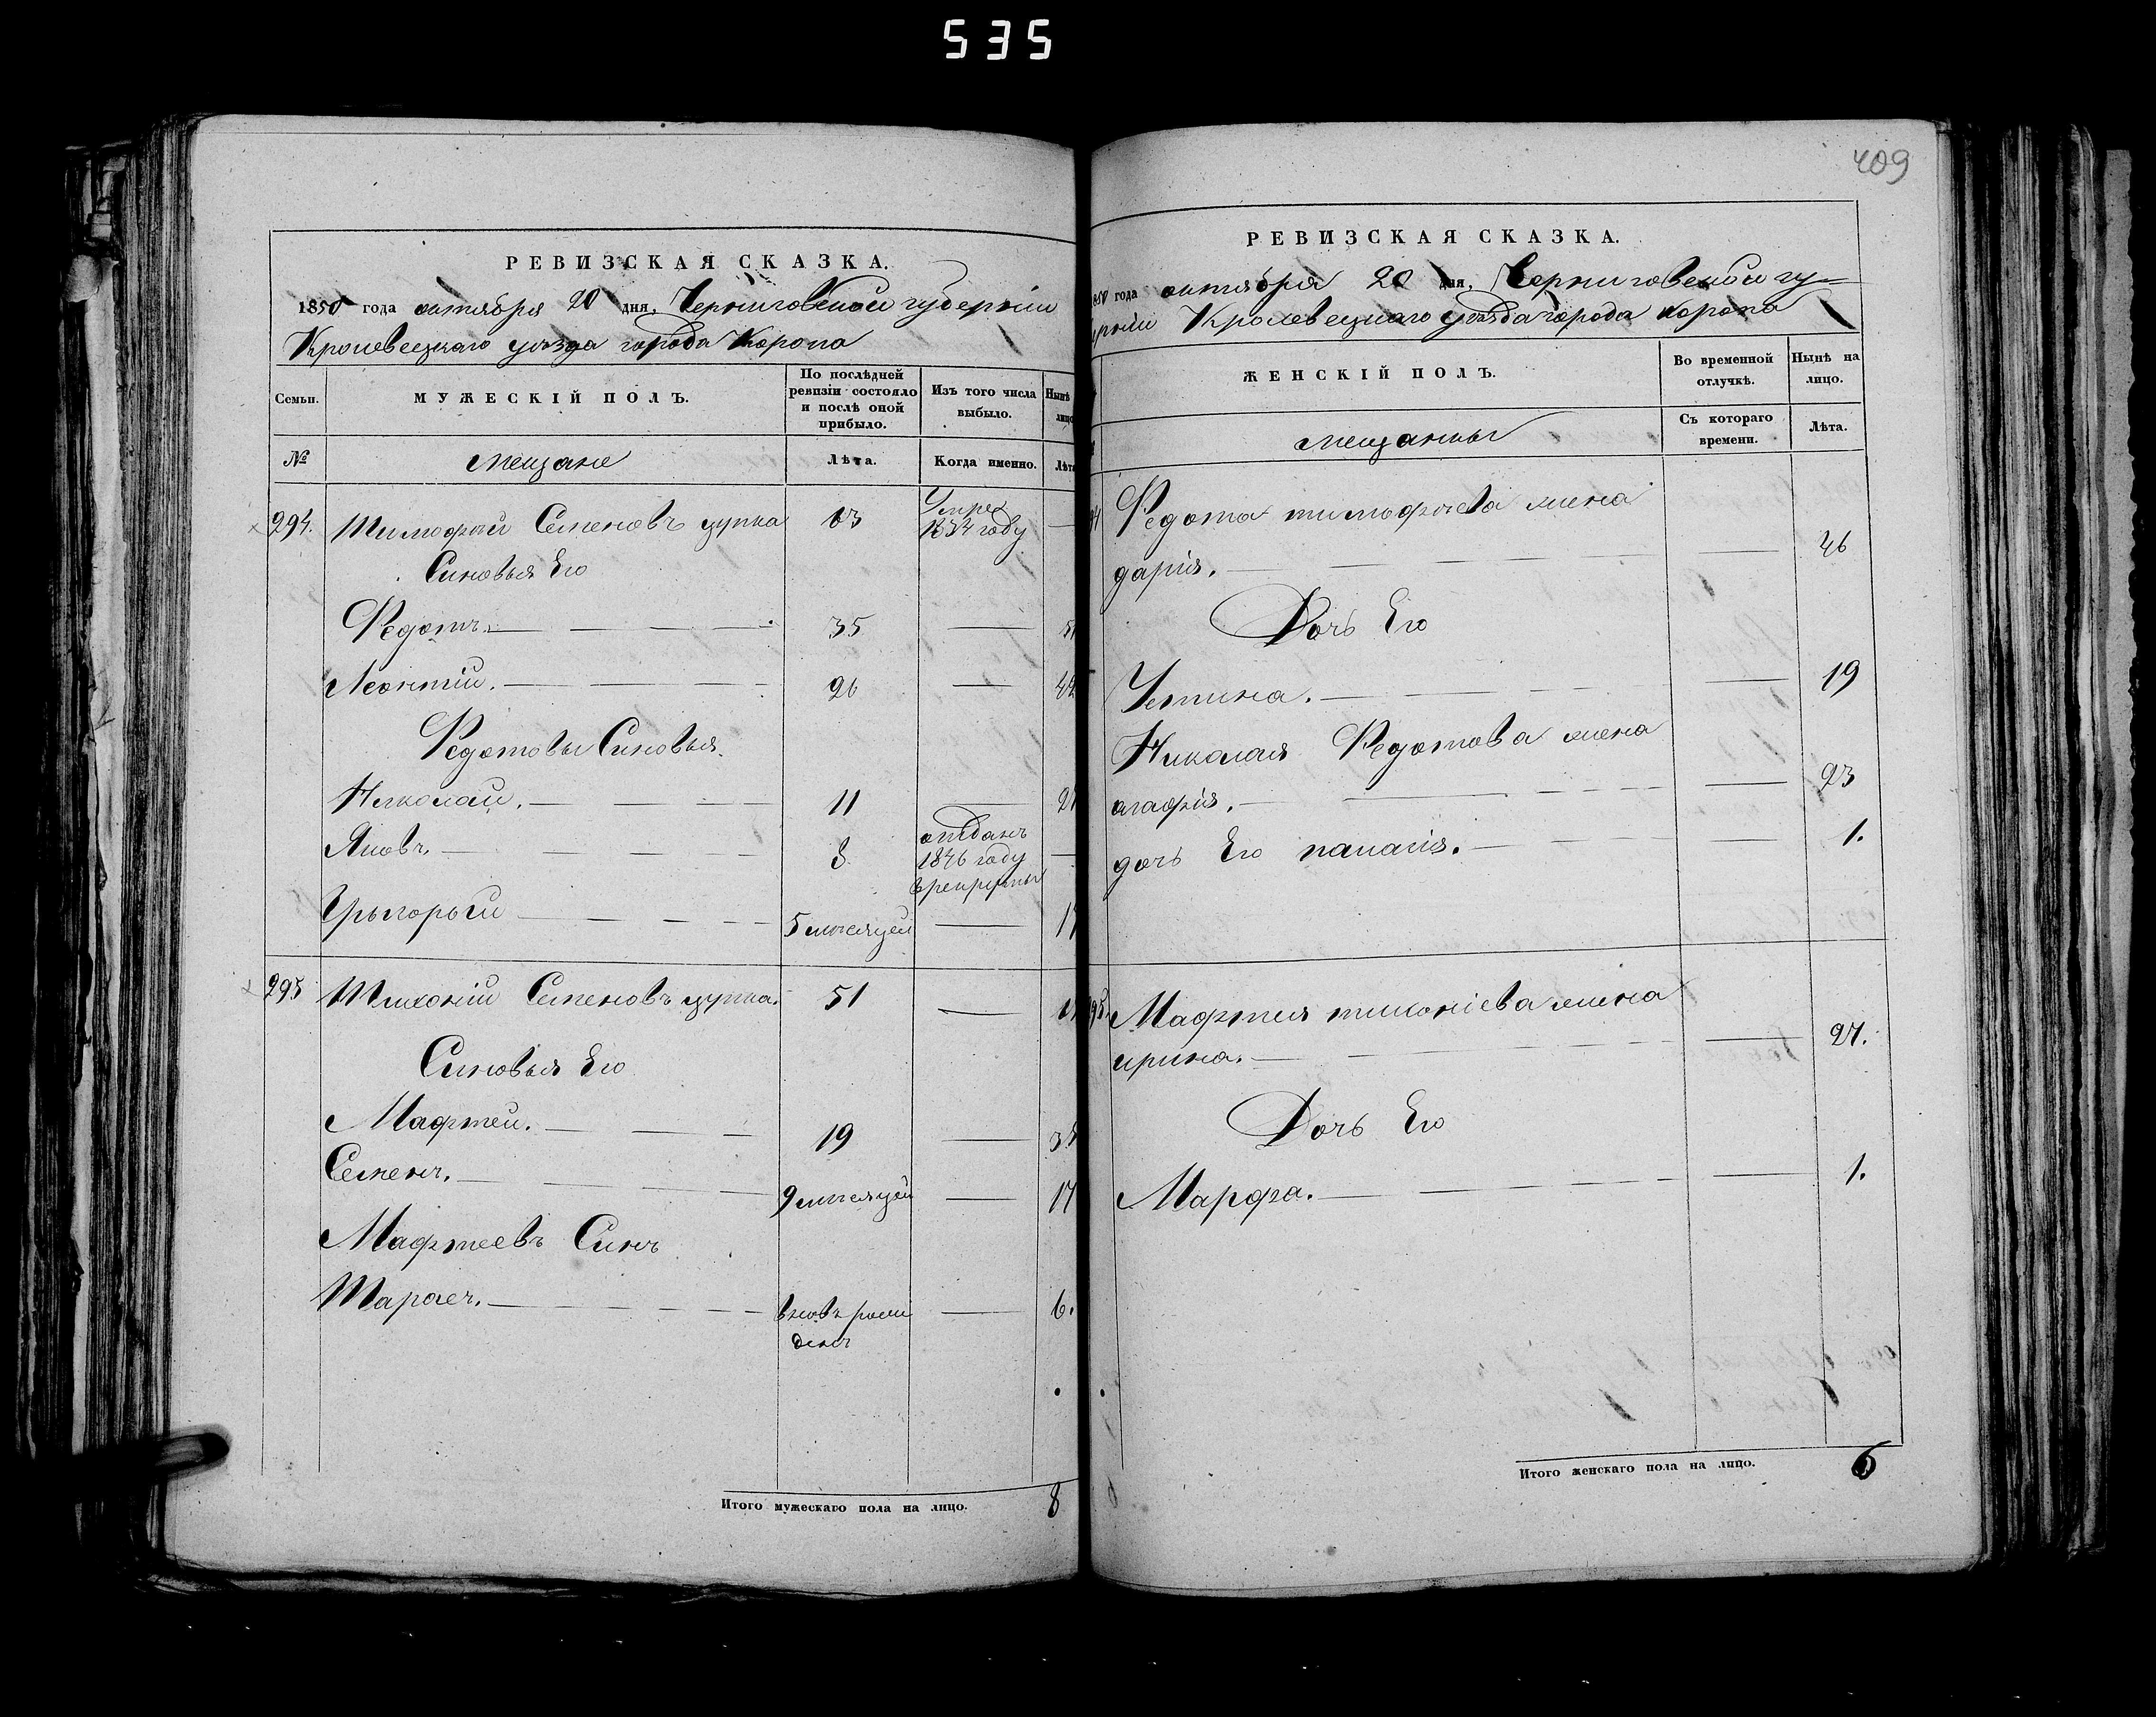 535
РЕВИЗСКАЯ СКАЗКА.
1850 года октября 20 дня, Черниговской губерніи
Кролевецкаго уѣзда города Коропа
Семьи.
МУЖЕСКІЙ ПОЛЪ.
По послѣдней ревизіи состояло и послѣ оной прибыло.
Изъ того числа выбыло.
Нынѣ
лицо
№
мещане
Лѣта.
Когда именно.
Лѣта
294. Тимофѣй Семеновъ цупка 63 Умре 1834 году —
Синовья Его
Федотъ. — 35 — 51
Леонтій. — 26 — 42
Федотовы Синовья.
Николай. — 11 — 27
Яковъ. — 8 отданъ 1846 году врекруты —
Грыгорый — 5 месяцей — 17
295 Тихоній Семеновъ цупка. 51 —
Синовья Его
Мафтей. — 19 — 35
Семенъ. — 9 месяцей — 17
Мафтеевъ Синъ
Тарасъ. — вновъ рож
денъ — 6.
Итого мужескаго пола на лицо. 8
409
РЕВИЗСКАЯ СКАЗКА.
850 года октября 20 дня, Черниговской гу-
ерніи Кролевецкаго уѣзда города коропа
ЖЕНСКІЙ ПОЛЪ.
Во временной отлучкѣ.
Нынѣ на лицо.
мещанкы
Съ котораго времени.
Лѣта.
94 Федота тимофѣева жена
дарія. — — 46
Дочъ Его
Устина. — — 19
Николая Федотова жена
агафія. — — 23
дочъ Его палагія. — — 1.
95. Мафтея тихоніева жена
ирина. — — 27.
Дочъ Его
Марфа. — — 1.
Итого женскаго пола на лицо. 6